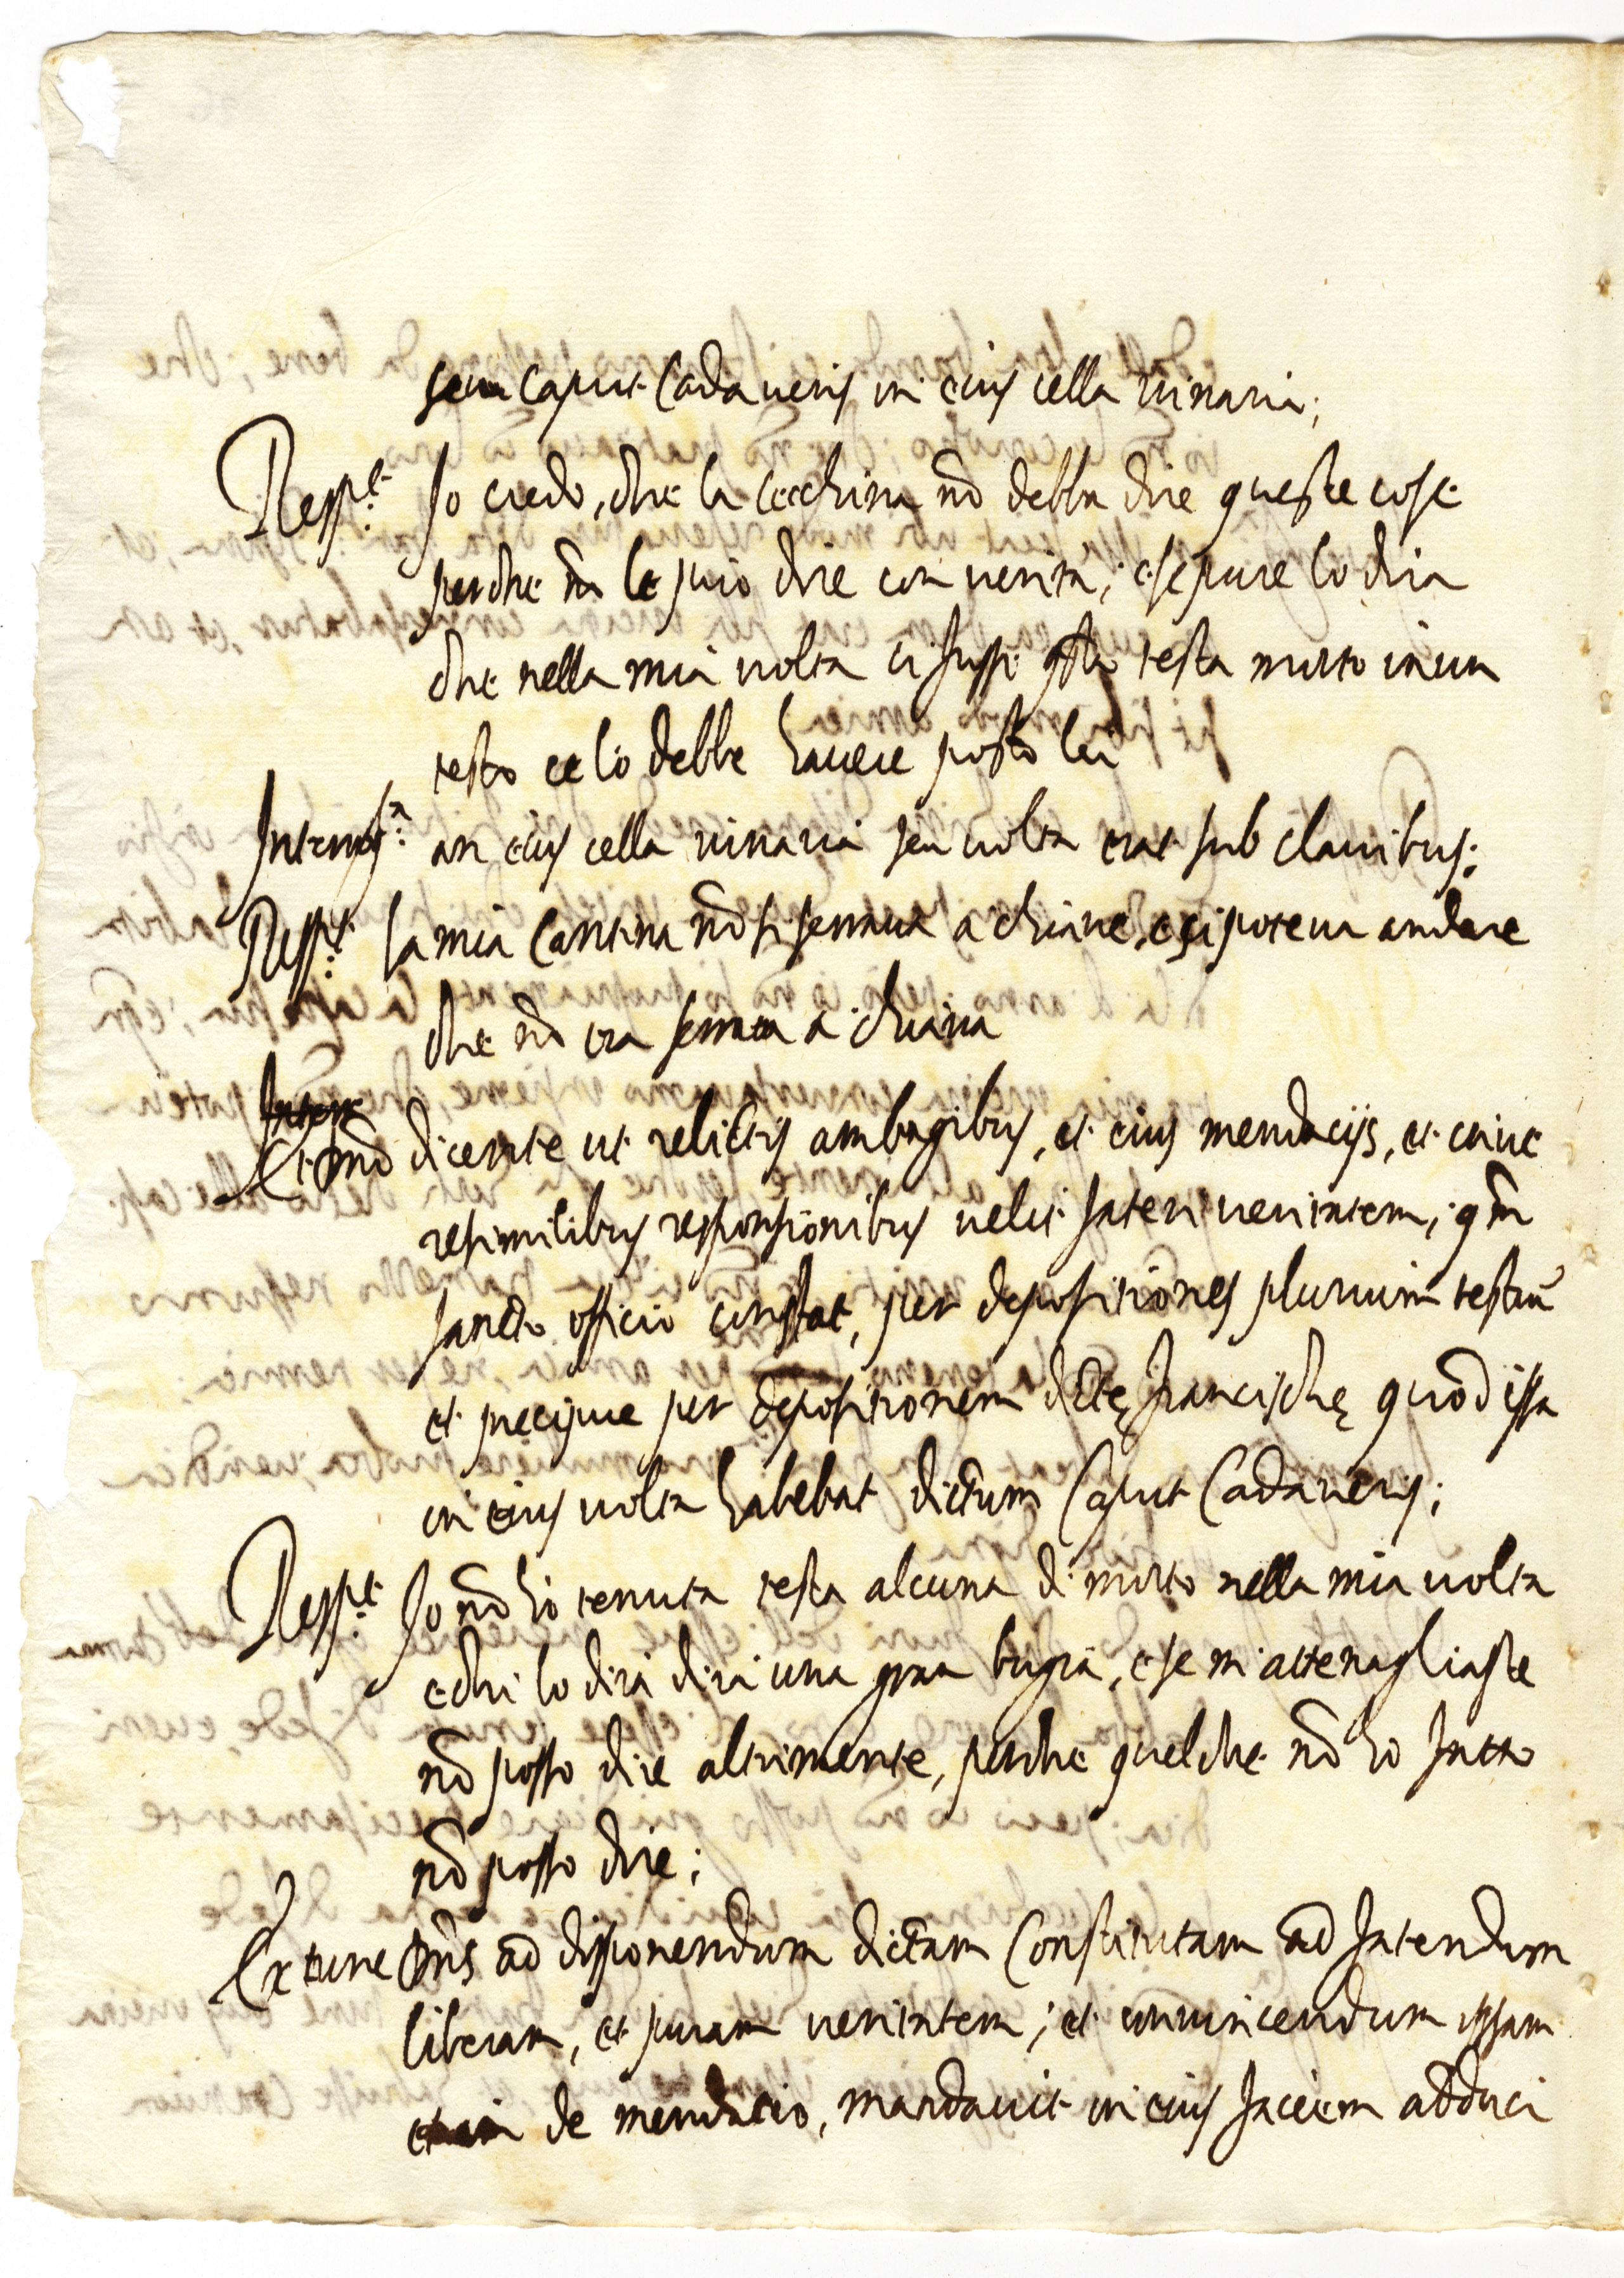 seu Caput Cadaueris in eius cella vinaria;
Resp.t Io credo, che la Cecchina nō debba dire queste cose
perche nō le può dire con uerità; e se pure lo dirà
che nella mia uolta ci fusse testa morto in un
testo ce lo debbe hauere posto lei
Interrog.ta an eius cella vinaria seu uolta erat sub clauibus;
Resp.t La mia Cantina nō si serraua a chiaue, e ci poteua andare
che nō era serrata a chiaue
Et Dnō dicente ut relictis ambagibus, et eius mendacijs, et
resimilibus responsionibus uelit fateri ueritatem; qm̄
sancto officio constat, per depositiones plurium testiū
et precipue per depositionem dictę Francischę quod ipsa
in eius uolta habebat dictum Caput Cadaueris;
Resp.t Io nō hò tenuta testa alcuna di morto nella mia uolta
e chi lo dirà dirà una gran bugia, e se mi attenagliaste
nō posso dire altrimente, perche quel che nō ho fatto
nō posso dire;
Ex tunc Dn̄s ad disponendum dictam Constitutam ad fatendum
liberam, et puram ueritatem; et conuincendum ipsam
de mendacio, mandauit in eius faciem adduci